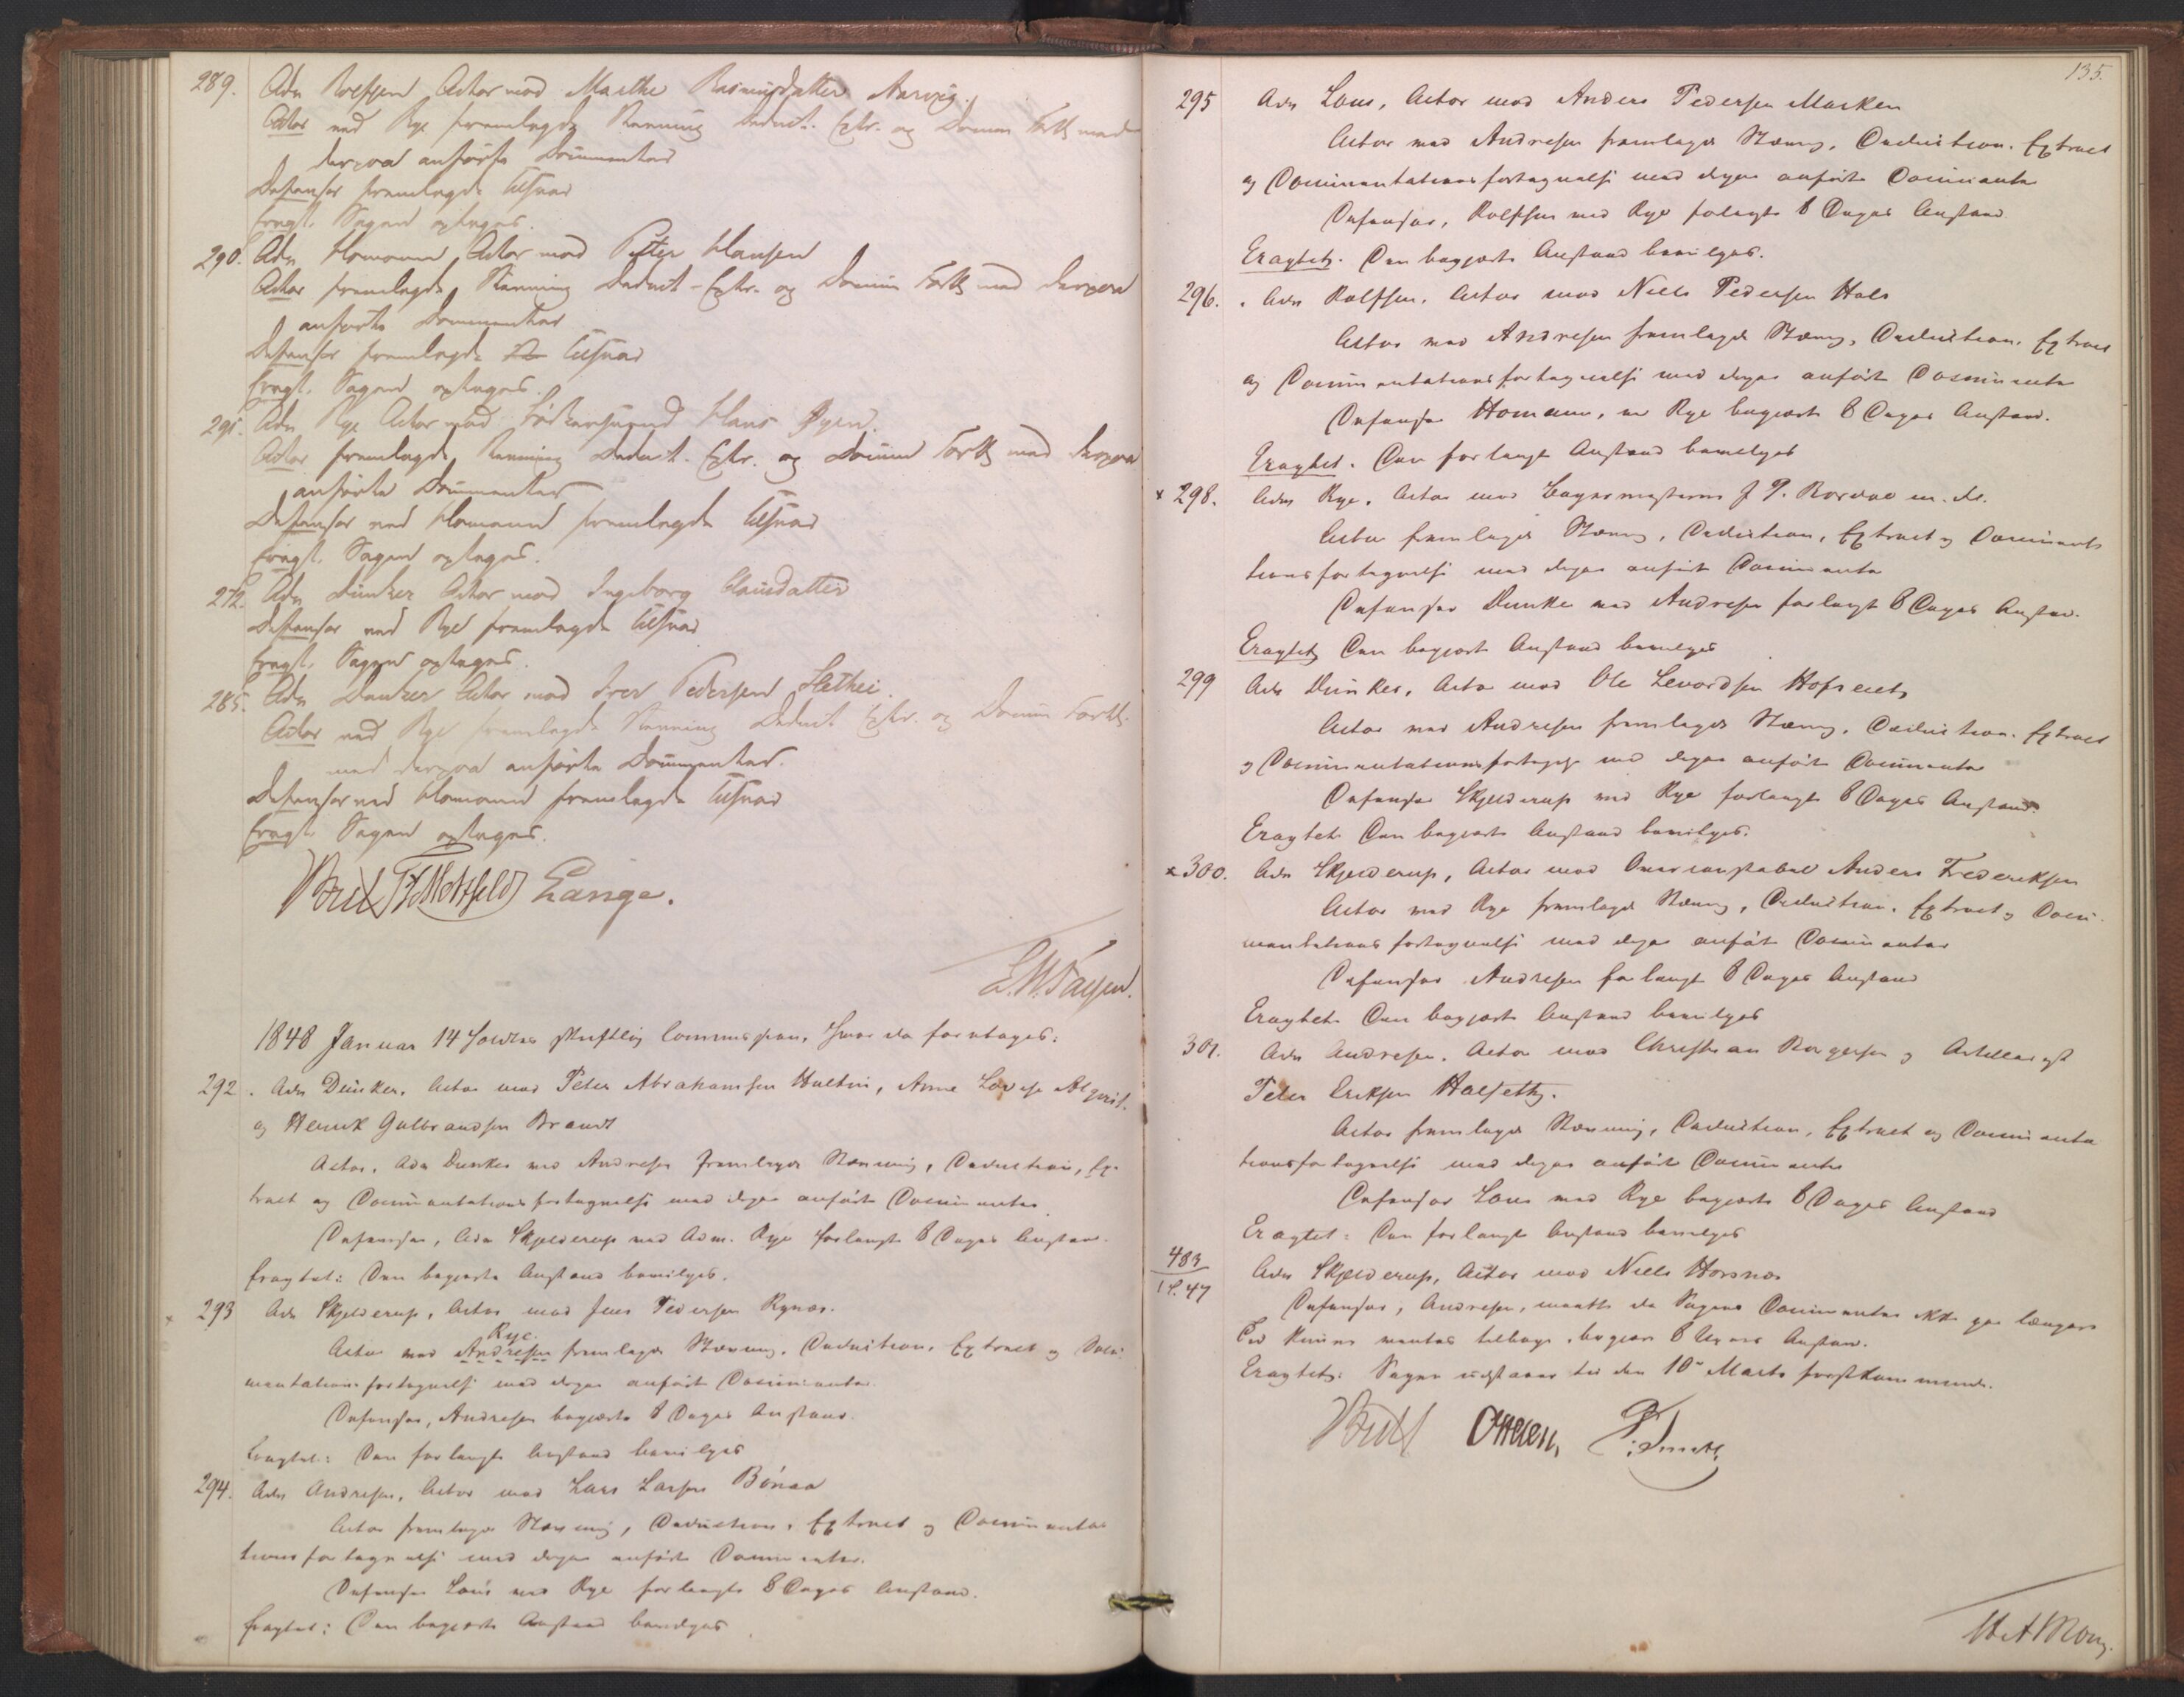 289. Adv Rolfsen Actor mod Marthe Rasmusdatter Aarvig.
Actor ved Rye fremlagde Stævning Deduct. Extr. og Docum Fortt med
derpaa anførte Documenter
Defensor fremlagde Tilsvar
Eragt. Sagen optages.
290. Adv Homann, Actor mod Petter Hansen
Actor fremlagde Stævning Deduct - Extr. og Docum Fortt med derpaa
anførte Documenter
Defensor fremlagde Tilsvar
Eragt. Sagen optages.
291. Adv Rye Actor mod Hans Øyen.
Actor fremlagde Stævning Deduct. Extr. og Docum Fortt med derpaa
anførte Documenter
Defensor ved Homann fremlagde Tilsvar
Eragt. Sagen optages.
272. Adv Dunker Actor mod Ingeborg Hansdatter
Defensor ved Rye fremlagde Tilsvar
Eragt. Sagen optages.
285. Adv Dunker Actor mod Iver Pedersen
Actor ved Rye fremlagde Stævning Deduct Extr. og Docum Fortt.
med derpaa anførte Documenter.
Defensor ved Homann fremlagde Tilsvar
Eragt. Sagen optages.
Motzfeldt Lange.
1848 Januar 14 holdtes skriftlig Commission, hvor da foretages:
292. Adv Dunker. Actor mod Peter Abrahamsen Hultin, Anne Lovise
og Henrik Gulbrandsen Brandt
Actor, Adv Dunker ved Andresen fremlagde Stævning, Deduction, Ex-
tract og Documentationsfortegnelse med deri anførte Documenter.
Defensor, Adv Skjelderup ved Adv. Rye forlangte 8 Dages Anstand.
Eragtet: Den begjærte Anstand bevilges.
× 293 Adv Skjelderup, Actor mod Jens Pedersen Rynas.
Rye.
Actor ved Andresen fremlagde Stævning, Deduction, Extract og Docu-
mentationsfortegnelse med deri anførte Documenter.
Defensor, Andresen begjærte 8 Dages Anstand.
Eragtet: Den forlangte Anstand bevilges
294. Adv Andresen, Actor mod Lars Larsen Bönaa
Actor fremlagde Stævning, Deduction, Extract og Documenta
tionsfortegnelse med deri anførte Documenter.
Defensor Lous ved Rye forlangte 8 Dages Anstand.
Eragtet: Den begjærte Anstand bevilges
135.
295 Adv Lous, Actor mod Anders Pedersen Marken
Actor ved Andresen fremlagde Stævng, Deduction, Extract
og Documentationsfortegnelse med deri anførte Documenter
Defensor, Rolfsen ved Rye forlangte 8 Dages Anstand
Eragtet. Den begjærte Anstand bevilges.
296. Adv Rolfsen, Actor mod Niels Pedersen Hals
Actor ved Andresen fremlagde Stævng, Deduction, Extract
og Documentationsfortegnelse med deri anførte Documenter
Defensor Homann, ved Rye begjærte 8 Dages Anstand.
Eragtet. Den forlangte Anstand bevilges
× 298. Adv Rye, Actor mod J P. m. fl.
Actor fremlagde Stævng, Deduction, Extract og Documenta
tionsfortegnelse med deri anførte Documenter
Defensor Dunker ved Andresen forlangte 8 Dages Anstand.
Eragtet Den begjærte Anstand bevilges
299 Adv Dunker, Actor mod Ole Levordsen
Actor ved Andresen fremlagde Stævng, Deduction, Extract
og Documentationsfortegnelse med deri anførte Documenter
Defensor Skjelderup ved Rye forlangte 8 Dages Anstand.
Eragtet Den begjærte Anstand bevilges.
× 300. Adv Skjelderup, Actor mod Overconstabel Anders Frederiksen
Actor ved Rye fremlagde Stævng, Deduction, Extract og Docu-
mentationsfortegnelse med deri anførte Documenter
Defensor Andresen forlangte 8 Dages Anstand
Eragtet Den begjærte Anstand bevilges
301. Adv Andresen, Actor mod Christian Borgersen og Artillerist
Peter Eriksen
Actor fremlagde Stævning, Deduction, Extract og Documenta
tionsfortegnelse med deri anførte Documenter
Defensor Lous ved Rye begjærte 8 Dages Anstand
Eragtet: Den forlangte Anstand bevilges
483
1847 Adv Skjelderup, Actor mod Niels Horsnes
Defensor, Andresen, maatte da Sagens Documenter ikke længere
Tid kunne ventes tilbage, begjære 8 Ugers Anstand.
Eragtet: Sagen udstaaer til den 10de Marts førstkommende.
Ottesen,